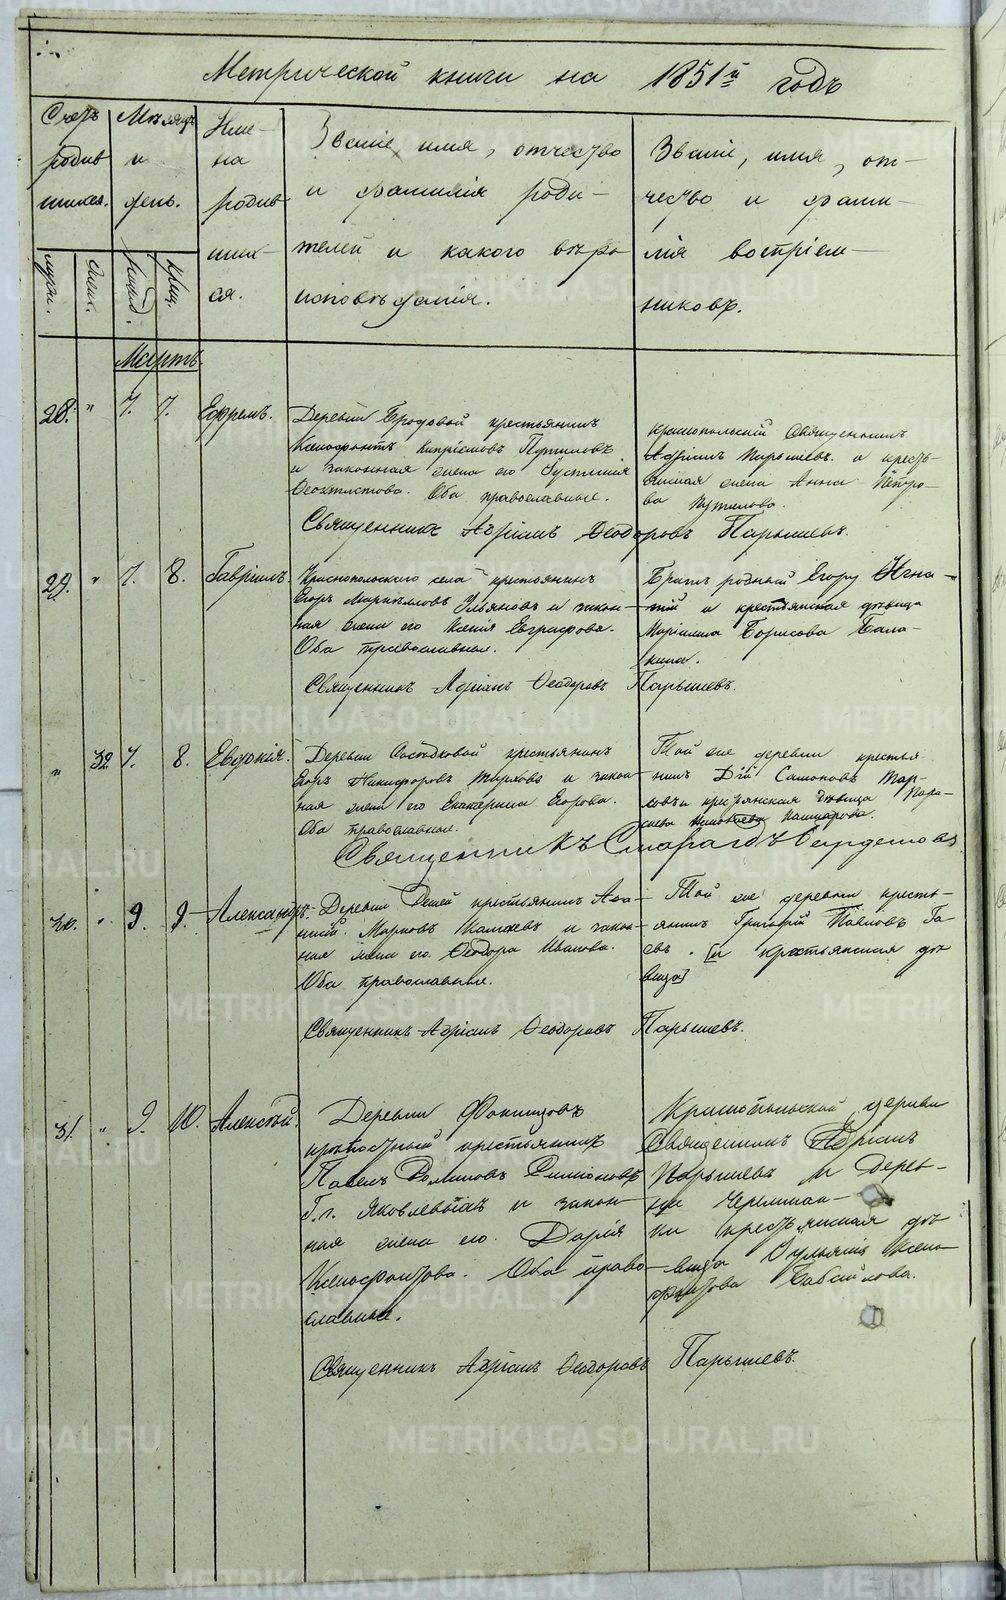 Метрической книги на 1851й годъ
Счетъ родившихся.
Мѣсяцъ и день.
Имена родившихся.
Званіе, имя, отчество
и фамилія роди-
телей и какого вѣро
исповѣданія.
Званіе, имя, от-
чество и фами-
лія воспріем-
никовъ.
муж.
жен.
рожд.
крещ.
Мартъ
28. " 7. 7. Ефремъ.
Деревни Бродовой крестьянинъ
Ксенофонтъ Путиловъ
и законная жена его Іустинія
Ѳеоктистова. Оба православные.
Краснопольскій Священникъ
Адріанъ Парышевъ и кресть-
янская жена Анна Петро-
ва Путилова.
Священникъ Адріанъ Ѳеодоровъ Парышевъ.
29. " 7. 8. Гавріилъ.
Краснопольского села крестьянинъ
Егоръ Ульяновъ и закон-
ная жена его Ксенія Евграфова.
Оба православные.
Братъ родный Егору Игна-
тій и крестьянская дѣвица
Маріамна Борисова Бала-
кина.
Священникъ Адріанъ Ѳеодоровъ Парышевъ.
" 32 7. 8. Евдокія.
Деревни крестьянинъ
Егоръ Никифоровъ и закон-
ная жена его Екатерина Егорова.
Оба православные.
Той же деревни крестья-
нинъ Дій
и крестьянская дѣвица
Священникъ Смарагдъ
30. " 9. 9. Александръ.
Деревни крестьянинъ
Марковъ и закон-
ная жена его Ѳеодора Иванова.
Оба православные.
Той же деревни кресть-
янинъ Григорій Павловъ Га-
евъ. [и крестьянская дѣ
вица]
Священникъ Адріанъ Ѳеодоровъ Парышевъ.
31. " 9. 10. Алексѣй.
Деревни Фокинцовъ
крѣпостный крестьянинъ
Павелъ
Г.г. Яковлевыхъ и закон-
ная жена его Дарія
Ксенофонтова. Оба право-
славные.
Краснопольской церкви
Священникъ Адріанъ
Парышевъ и Дерев-
ни Черемшан-
ки крестьянская дѣ-
вица Іулянія Ксено-
фонтова Бабайлова.
Священникъ Адріанъ Ѳеодоровъ Парышевъ.
METRIKI.GASO-URAL.RU